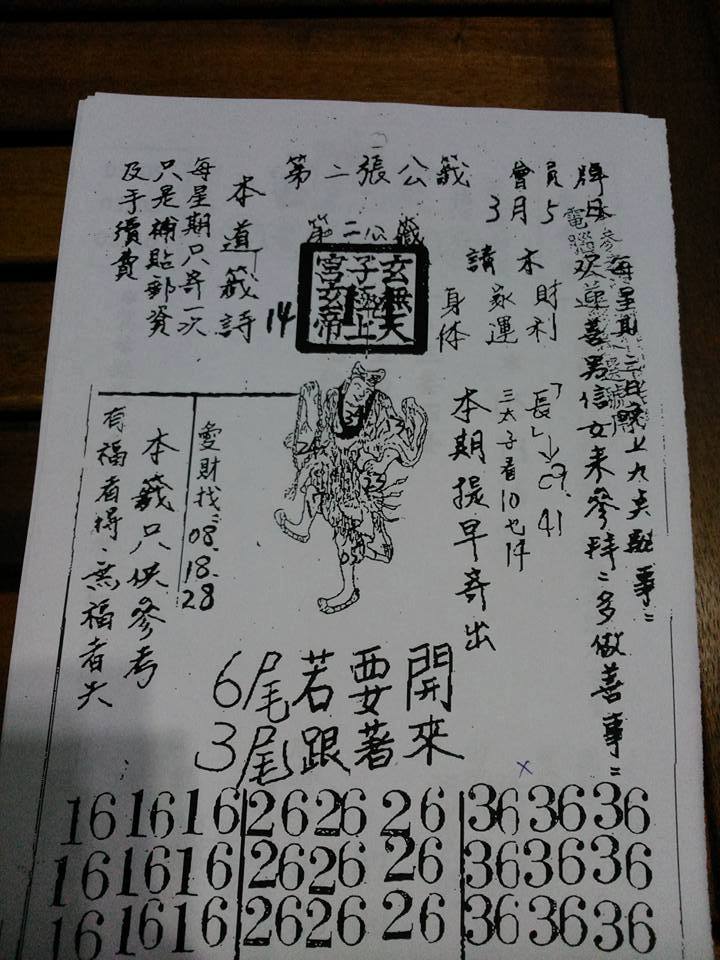 每星期三日晚上九点聖事:
欢迎善男信女来參拜:多做善事:
牌日
會員
3月5
第二張公籤
第二公籤
玄拱天
子極上
宮玄帝
本道籤詩
14
每星期只寄一次
只是補貼郵資
及手續費
請求
財利
家運
身体
「長」→09.41
三太子看10也件
本期提早寄出
24
23
17
05
愛財找:08.18.28
本籤只供參考
有福者得、無福者失
6尾若要開
3尾跟著來
16 16 16 26 26 26 36 36 36
16 16 16 26 26 26 36 36 36
16 16 16 26 26 26 36 36 36